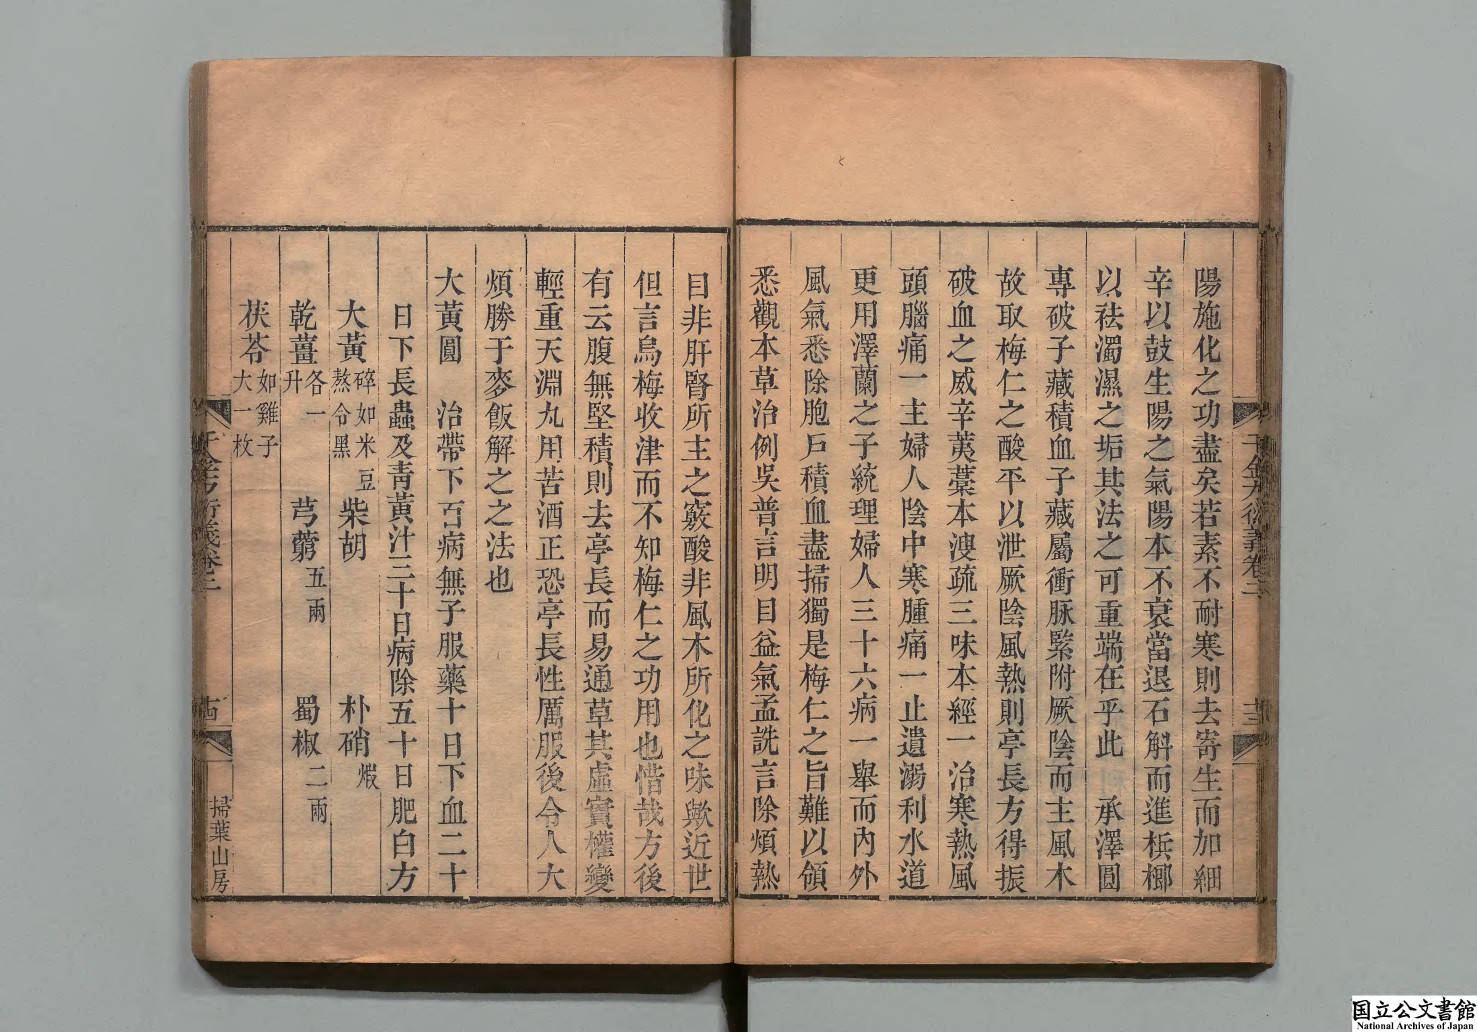 陽施化之功盡矣若素不耐寒則去寄生而加細
辛以鼓生陽之氣陽本不衰當退石斛而進梹榔
以祛濁濕之垢其法之可重端在乎此　承澤圓
專破子藏積血子藏屬衝脉緊附厥陰而主風木
故取梅仁之酸平以泄厥陰風熱則亭長方得振
破血之威辛荑藁本溲疏三味本經一治寒熱風
頭腦痛一主婦人陰中寒腫痛一止遺溺利水道
更用澤蘭之子統理婦人三十六病一舉而內外
風氣悉除胞戶積血盡掃獨是梅仁之旨難以領
悉觀本草治例吳普言明目益氣孟詵言除煩熱
千金方衍義卷二
十三
目非肝腎所主之竅酸非風木所化之味歟近世
但言烏梅收津而不知梅仁之功用也惜哉方後
有云腹無堅積則去亭長而易通草其虛實權變
輕重天淵丸用苦酒正恐亭長性厲服後令人大
煩勝于麥飯解之之法也
大黃圓　治帶下百病無子服藥十日下血二十
日下長蟲及青黃汁三十日病除五十日肥白方
大黃碎如米豆熬令黑　柴胡　朴硝煆
乾薑各一升　芎藭五兩　蜀椒二兩
茯苓如雞子大一枚
千金方衍義卷二
十四
掃葉山房
国立公文書館
National Archives of Japan